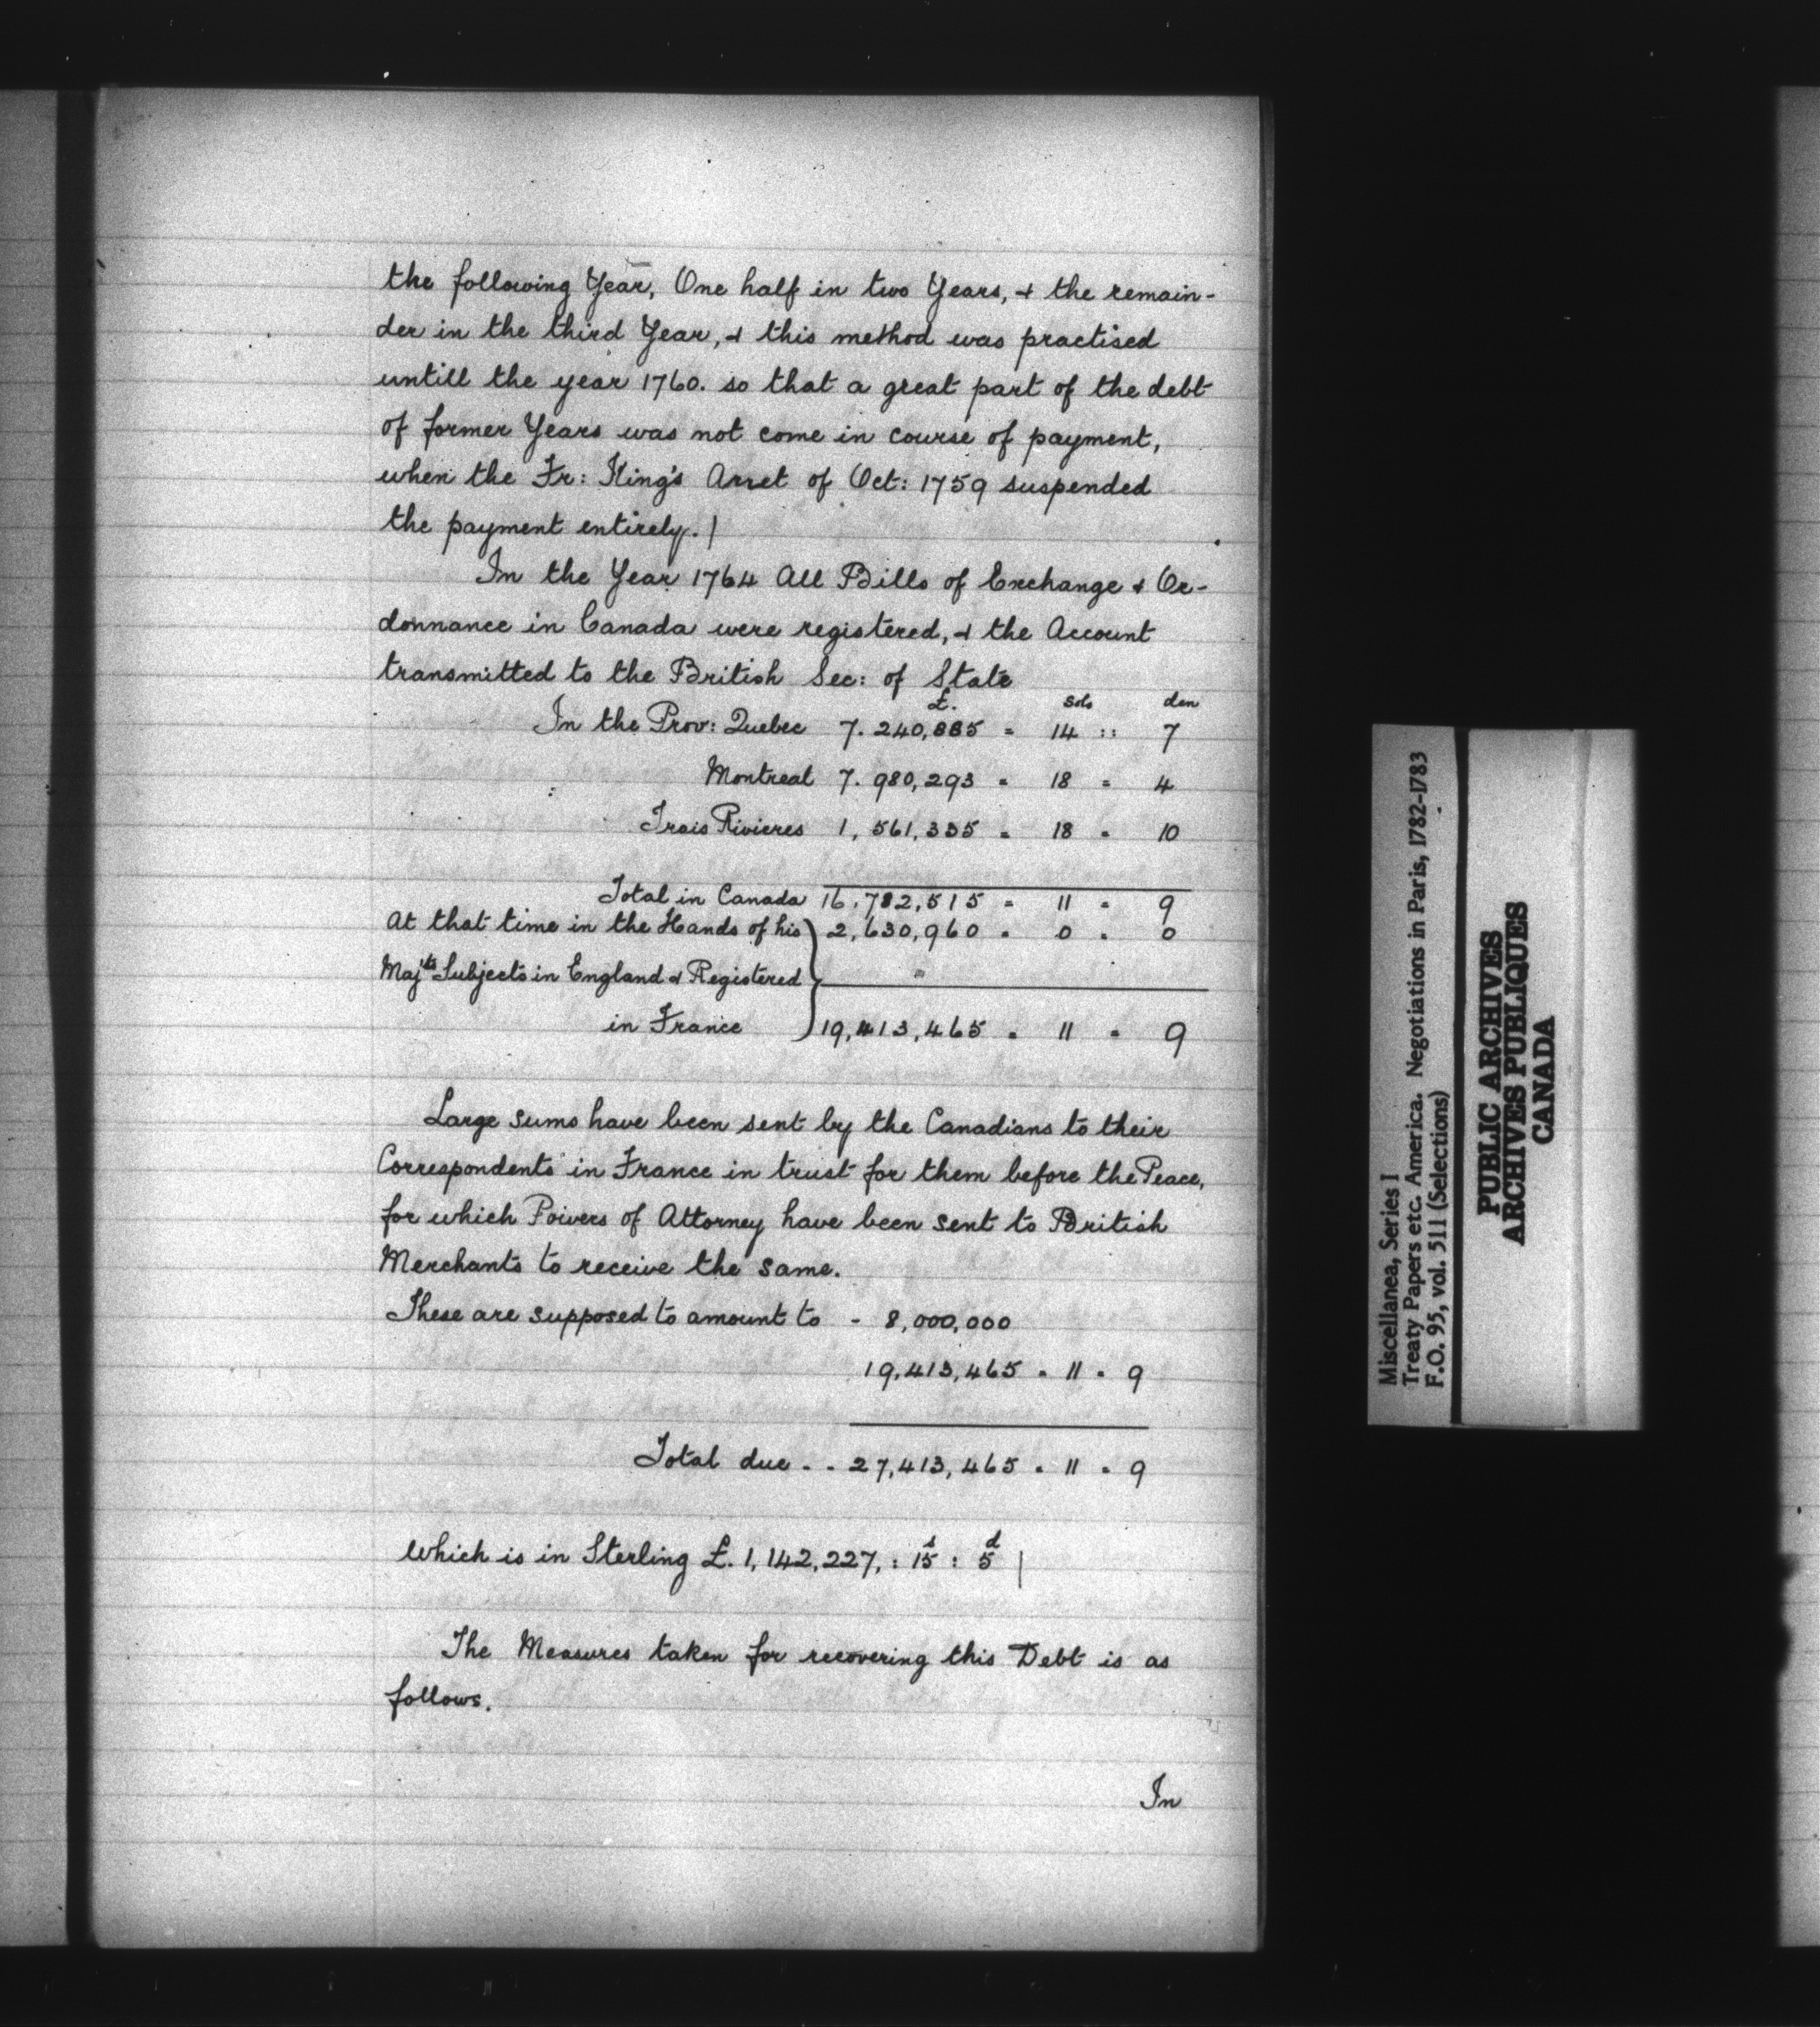 the following Year, One half in two Years, & the remain-
der in the third Year, & this method was practised
untill the year 1760. so that a great part of the debt
of former Years was not come in course of payment,
when the Fr: King's Arret of Oct: 1759 suspended
the payment entirely. |
In the Year 1764 All Bills of Exchange & Or-
donnance in Canada were registered, & the Account
transmitted to the British Sec: of State
£. sols den
In the Prov: Quebec 7. 240,885 = 14 :: 7
Montreal 7. 980,293 = 18 = 4
Trois Rivieres 1, 561,335 = 18 = 10
Total in Canada 16,782,515 = 11 = 9
At that time in the Hands of his 2,630,960 = 0 = 0
Maj'ts Subjects in England & Registered
in France 19,413,465 = 11 = 9
Large sums have been sent by the Canadians to their
Correspondents in France in trust for them before the Peace,
for which Powers of Attorney have been sent to British
Merchants to receive the same.
These are supposed to amount to - 8,000,000
19,413,465 = 11 = 9
Total due - - 27,413,465 = 11 = 9
Which is in Sterling £. 1,142,227, : 15s : 5d |
The Measures taken for recovering this Debt is as
follows.
In
Miscellanea, Series I
Treaty Papers etc. America. Negotiations in Paris, 1782-1783
F.O. 95, vol. 511 (Selections)
PUBLIC ARCHIVES
ARCHIVES PUBLIQUES
CANADA